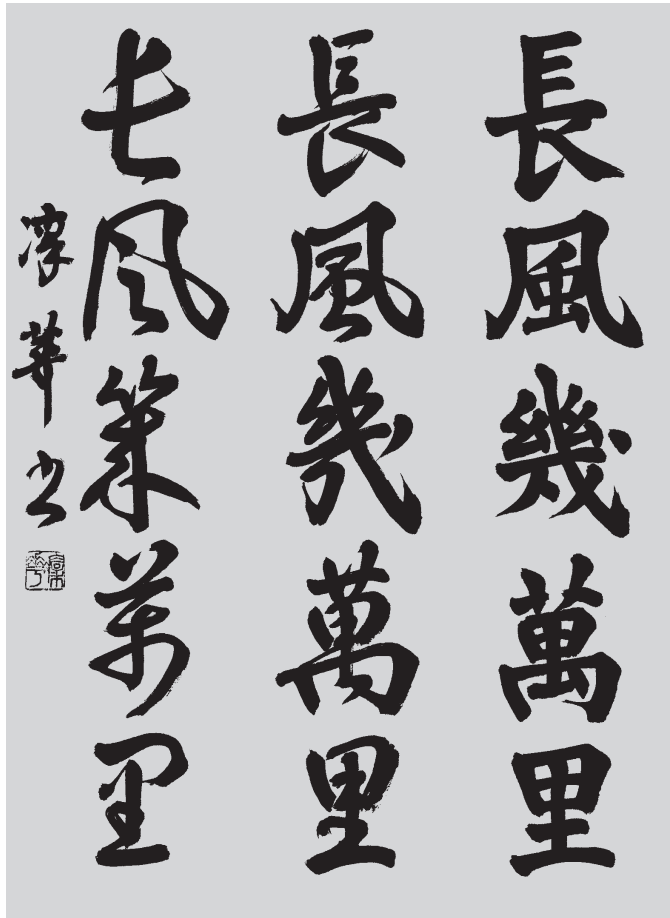 長風幾萬里
長風幾萬里
長風幾萬里
華書